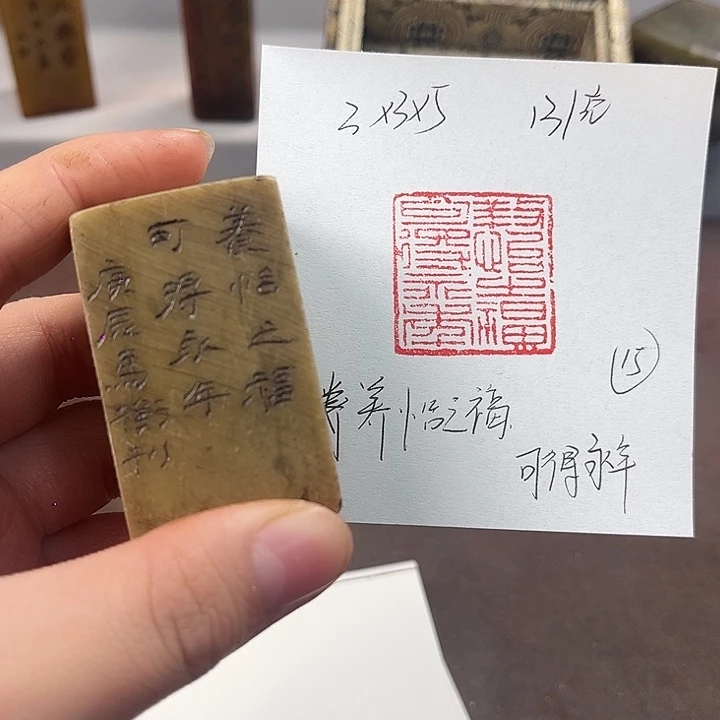 養怡之福
可得永年
庚辰馬衡
3×3×5 131克
養怡之福
可得永年
15
养怡之福
可得永年